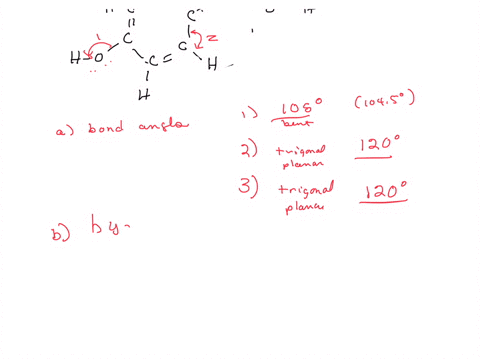 C
C
1
C
C 2
H-O
C=C
H
H
a) bond angle
1) 105° (104.5°)
bent
2) trigonal planar 120°
3) trigonal planar 120°
b) hy